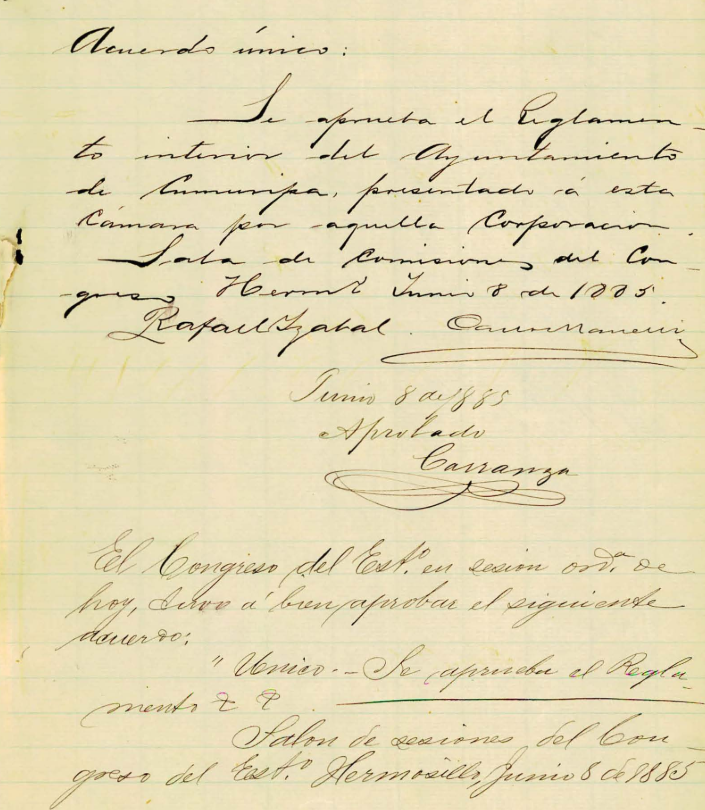 Acuerdo único:
Se aprueba el Reglamen-
to interior del Ayuntamiento
de Cumuripa, presentado á esta
Cámara por aquella Corporacion.
Sala de Comisiones del Con-
greso Hermo. Junio 8 de 1885.
Rafael Izabal.
Junio 8 de 1885
Aprobado
Carranza
El Congreso del Est.º en sesion ord.ª de
hoy, tuvo á bien aprobar el siguiente
acuerdo:
"Unico.- Se aprueba el Regla-
mento & &
Salon de sesiones del Con-
greso del Est.º Hermosillo, Junio 8 de 1885